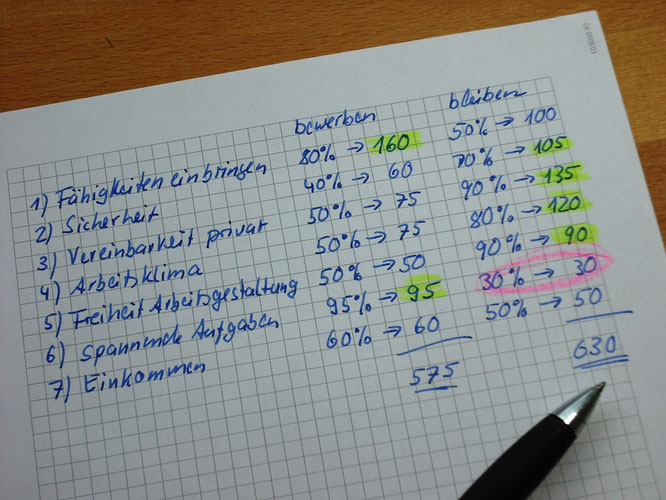 bewerben bleiben
1) Fähigkeiten einbringen 80% → 160 50% → 100
2) Sicherheit 40% → 60 70% → 105
3) Vereinbarkeit privat 50% → 75 90% → 135
4) Arbeitsklima 50% → 75 80% → 120
5) Freiheit Arbeitsgestaltung 50% → 50 90% → 90
6) Spannende Aufgaben 95% → 95 30% → 30
7) Einkommen 60% → 60 50% → 50
575 630